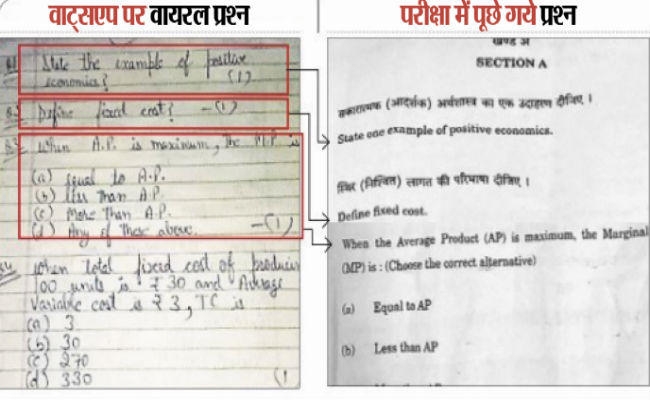 वाट्सएप पर वायरल प्रश्न
State the example of positive
economics? (1)
Define fixed cost? -(1)
When A.P. is maximum, the M.P is
(a) equal to A.P.
(b) less than A.P.
(c) More than A.P.
(d) Any of these above. -(1)
When total fixed cost of producing
100 units is ₹ 30 and Average
Variable cost is ₹ 3, TC is
(a) 3
(b) 30
(c) 270
(d) 330 (1
परीक्षा में पूछे गये प्रश्न
खण्ड अ
SECTION A
सकारात्मक (आदर्शक) अर्थशास्त्र का एक उदाहरण दीजिए ।
State one example of positive economics.
स्थिर (निश्चित) लागत की परिभाषा दीजिए ।
Define fixed cost.
When the Average Product (AP) is maximum, the Marginal
(MP) is : (Choose the correct alternative)
(a) Equal to AP
(b) Less than AP